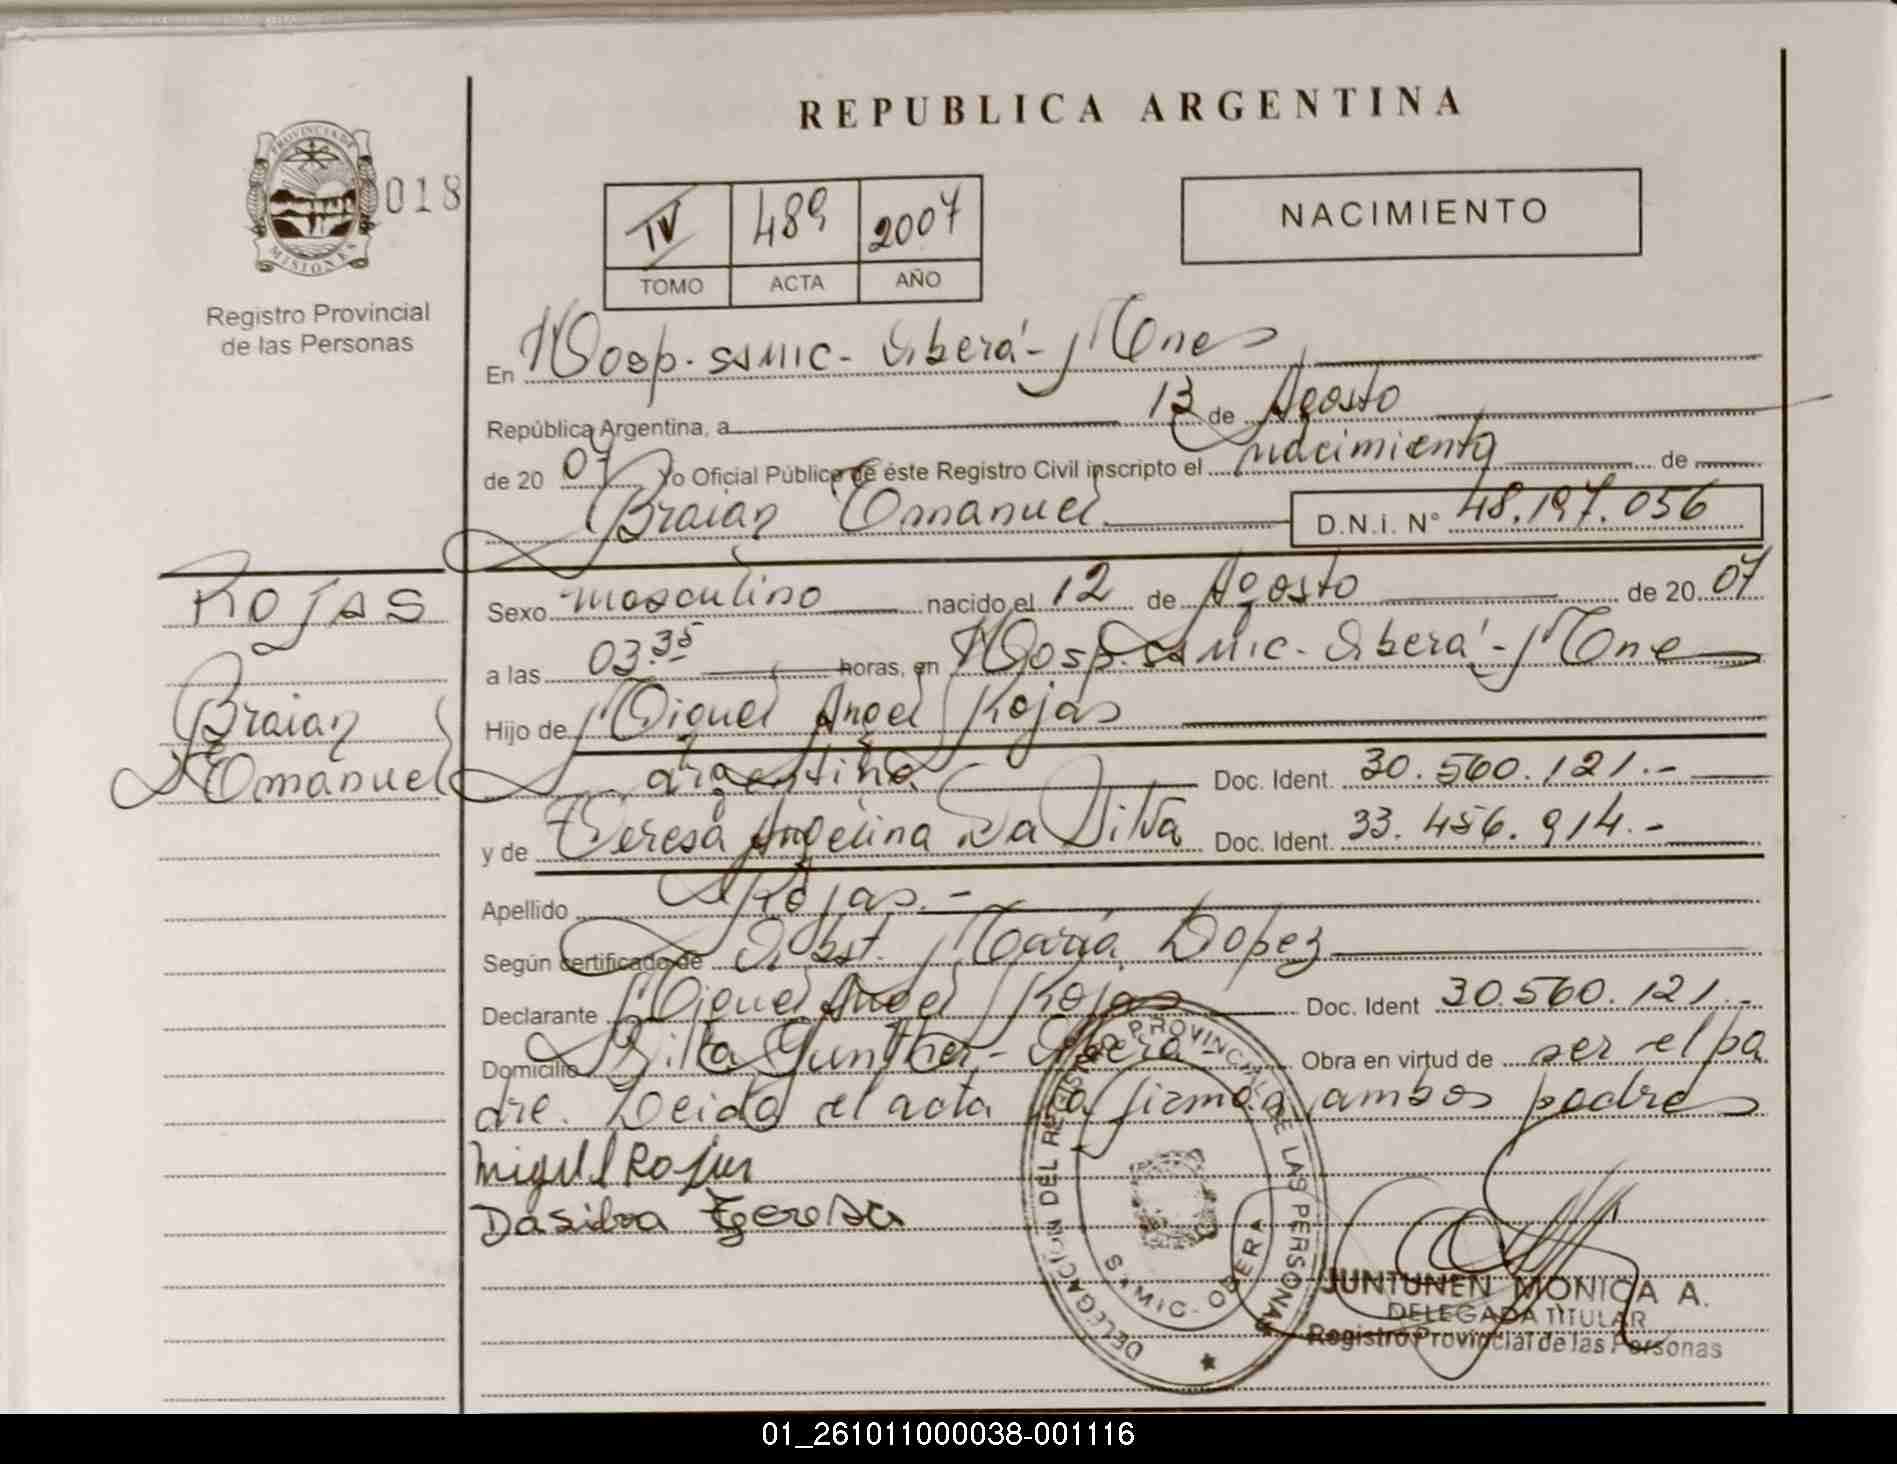 REPUBLICA ARGENTINA
PROVINCIA DE
MISIONES
018
Registro Provincial
de las Personas
IV 489 2007
TOMO ACTA AÑO
NACIMIENTO
En Hosp. SAMIC - Oberá - Mnes
República Argentina, a 13 de Agosto
de 20 07 Yo Oficial Público de éste Registro Civil inscripto el nacimiento de
Braian Emanuel D.N.I. N° 48.197.056
ROJAS
Braian
Emanuel
Sexo masculino nacido el 12 de Agosto de 20 07
a las 03.35 horas, en Hosp. SAMIC - Oberá - Mnes
Hijo de Miguel Angel Rojas
argentino Doc. Ident. 30.560.121.-
y de Teresa Angelina Da Silva Doc. Ident. 33.456.914.-
Apellido Rojas.-
Según certificado de Obst. María Lopez
Declarante Miguel Angel Rojas Doc. Ident 30.560.121.-
Domicilio Villa Gunther - Oberá Obra en virtud de ser el pa
dre. Leida el acta la firman ambos padres
Miguel Rojas
Dasilva Teresa
DELEGACIÓN DEL REGISTRO PROVINCIAL DE LAS PERSONAS
SAMIC - OBERA
JUNTUNEN MONICA A.
DELEGADA TITULAR
Registro Provincial de las Personas
01_261011000038-001116